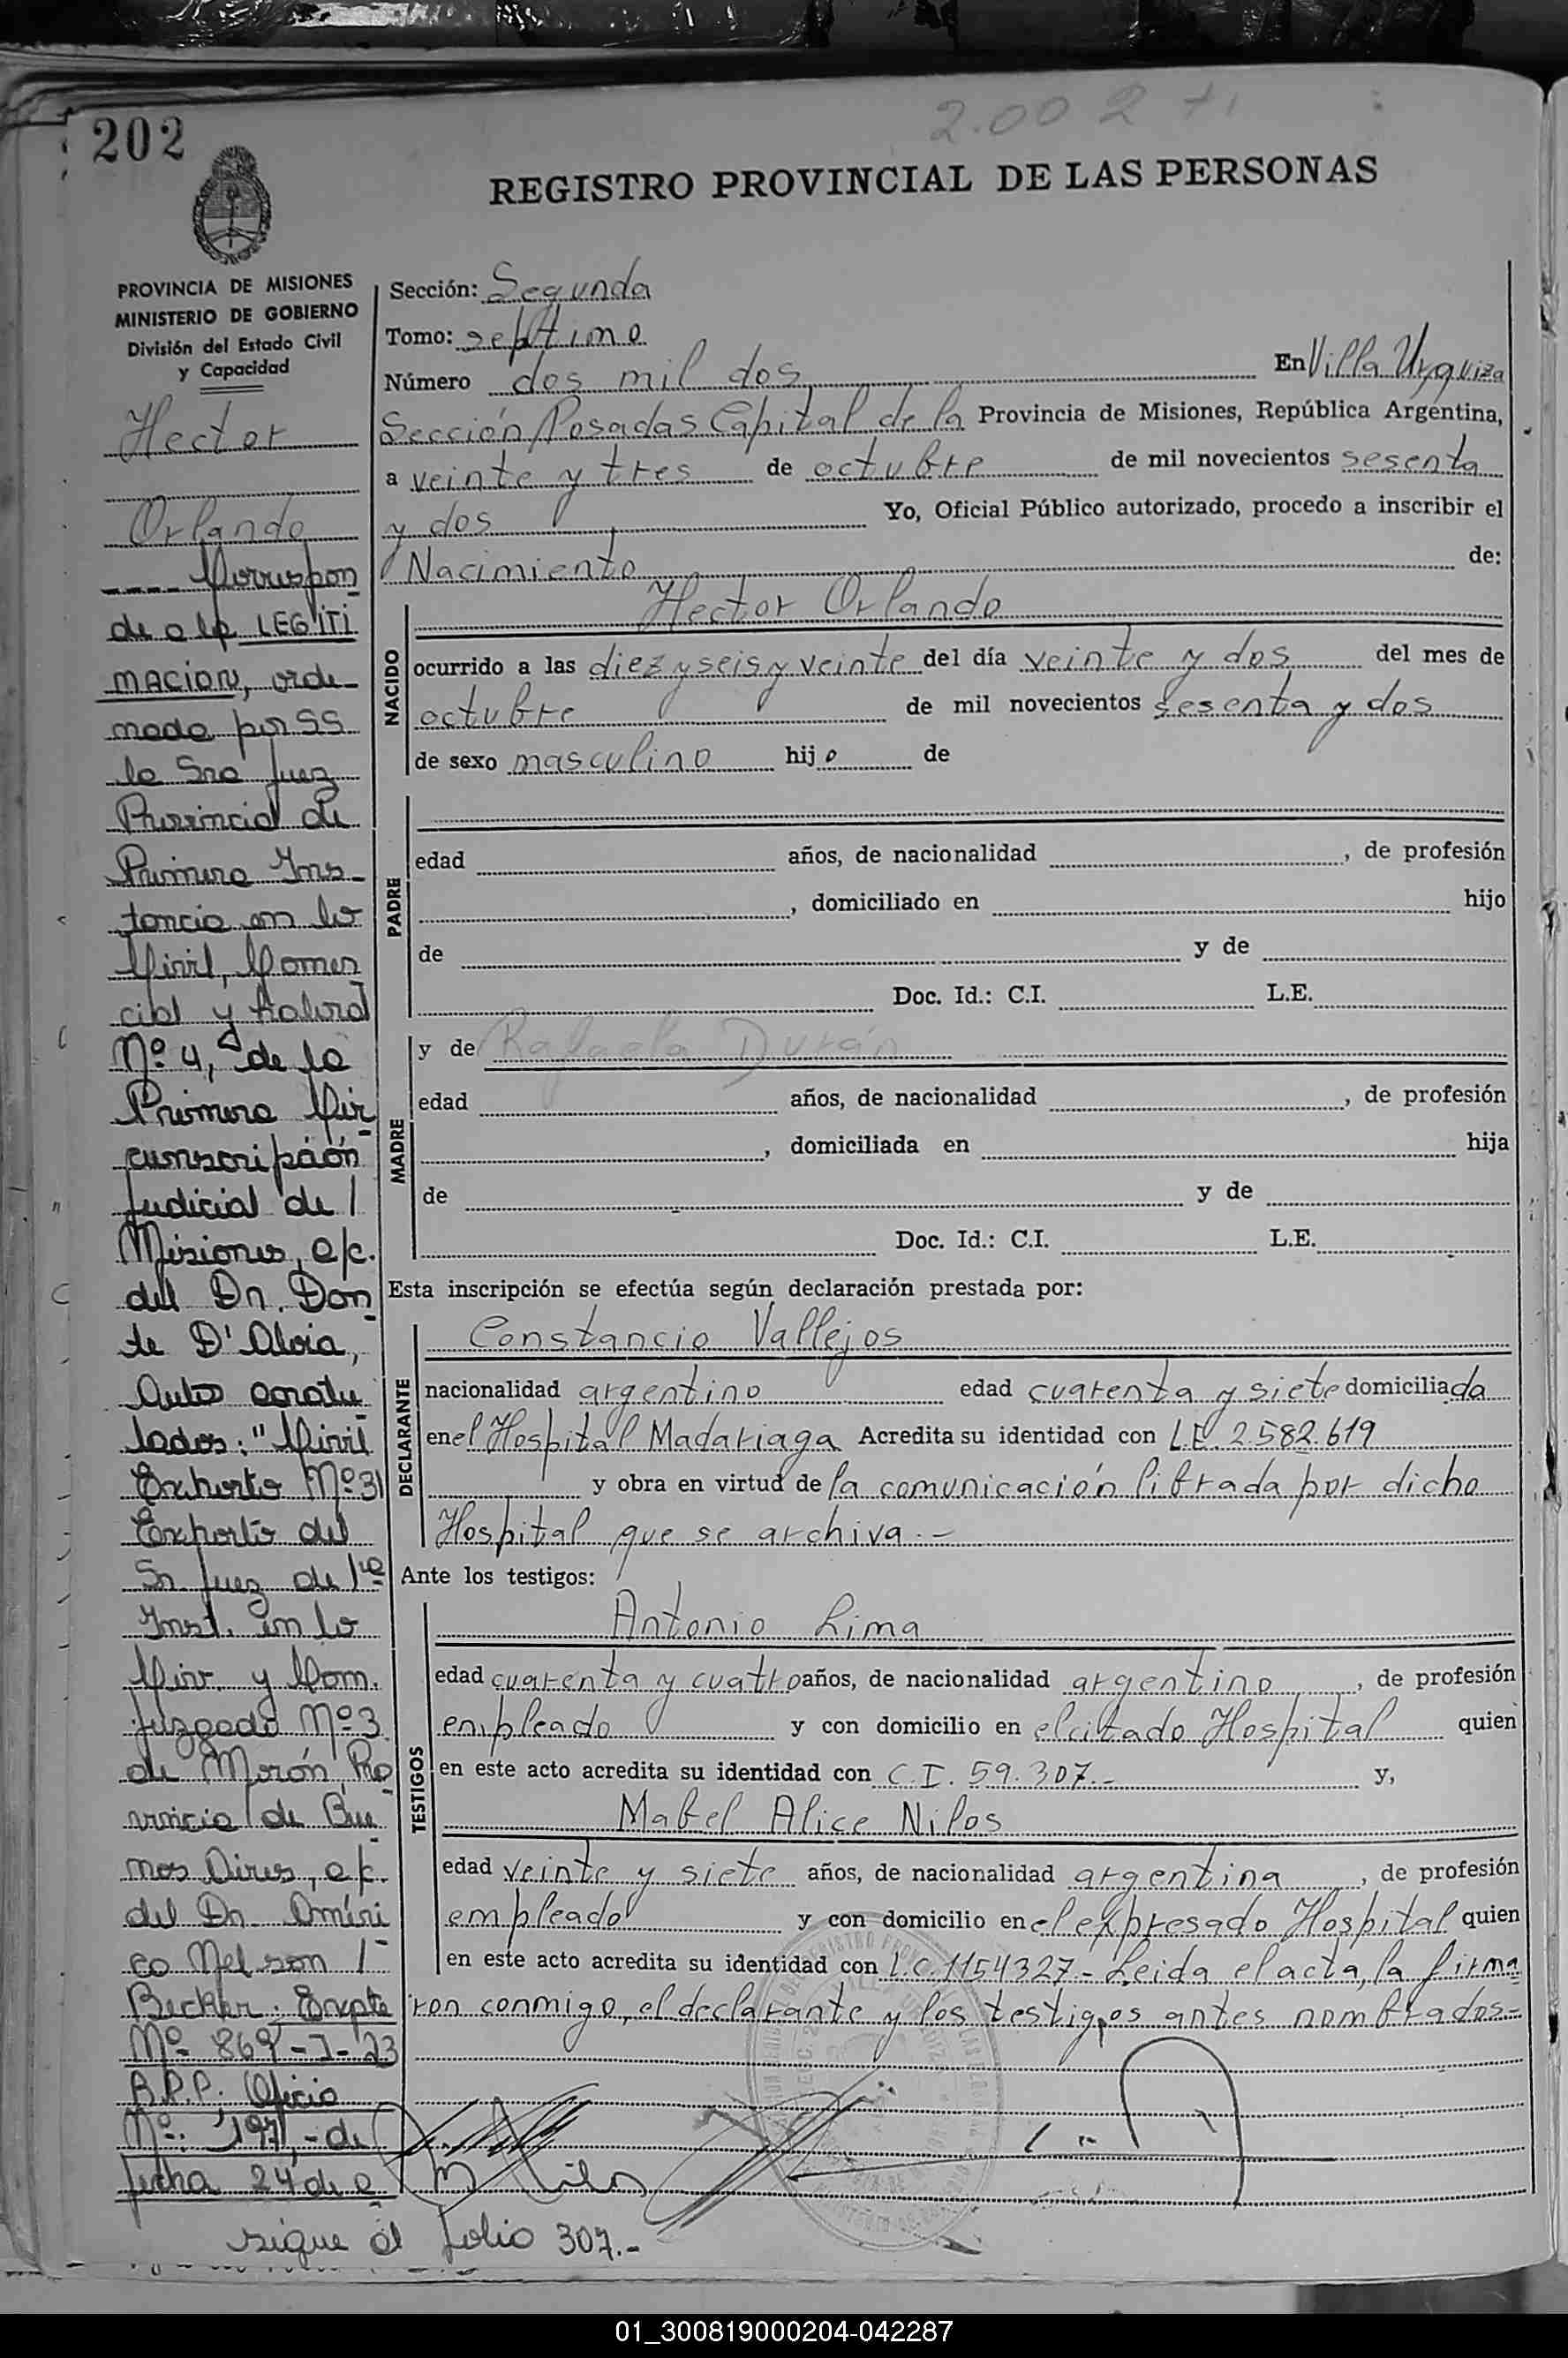 202
2.002
REGISTRO PROVINCIAL DE LAS PERSONAS
PROVINCIA DE MISIONES
MINISTERIO DE GOBIERNO
División del Estado Civil
y Capacidad
Hector
Orlando
Correspon
de a la LEGITI
MACION, orde
nada por SS
la Sra Juez
Provincial de
Primera Ins
tancia en lo
Civil, Comer
cial y Laboral
Nº 4, de la
Primera Cir
cunscripción
Judicial de
Misiones, a/c.
del Dr. Don
te D'Aloia,
Autos caratu
lados: "Civil
Exhorto Nº 31
Exhorto del
Sr Juez de 1ra
Inst. en lo
Civ. y Com.
Juzgado Nº 3
de Morón, Pro
vincia de Bue
nos Aires, a/c.
del Dr.
Nelson
Becker; Expte
Nº 869-I-23
R.P.P; Oficio
Nº: 197,- de
fecha 24 de
sigue al folio 307.-
Sección: Segunda
Tomo: septimo
Número dos mil dos En Villa Urquiza
Sección Posadas Capital de la Provincia de Misiones, República Argentina,
a veinte y tres de octubre de mil novecientos sesenta
y dos Yo, Oficial Público autorizado, procedo a inscribir el
Nacimiento de:
NACIDO
Hector Orlando
ocurrido a las diez y seis y veinte del día veinte y dos del mes de
octubre de mil novecientos sesenta y dos
de sexo masculino hijo de
PADRE
edad años, de nacionalidad , de profesión
, domiciliado en hijo
de y de
Doc. Id.: C.I. L.E.
MADRE
y de Rafaela Durán
edad años, de nacionalidad , de profesión
, domiciliada en hija
de y de
Doc. Id.: C.I. L.E.
Esta inscripción se efectúa según declaración prestada por:
DECLARANTE
Constancio Vallejos
nacionalidad argentino edad cuarenta y siete domiciliada
en el Hospital Madariaga Acredita su identidad con L.E. 2.582.619
y obra en virtud de la comunicación librada por dicho
Hospital que se archiva.-
Ante los testigos:
TESTIGOS
Antonio Lima
edad cuarenta y cuatro años, de nacionalidad argentino , de profesión
empleado y con domicilio en el citado Hospital quien
en este acto acredita su identidad con C.I. 59.307.- y,
Mabel Alice Nilos
edad veinte y siete años, de nacionalidad argentina , de profesión
empleado y con domicilio en el expresado Hospital quien
en este acto acredita su identidad con L.C. 1154327.- Leida el acta, la firma
ron conmigo, el declarante y los testigos antes nombrados=
01_300819000204-042287